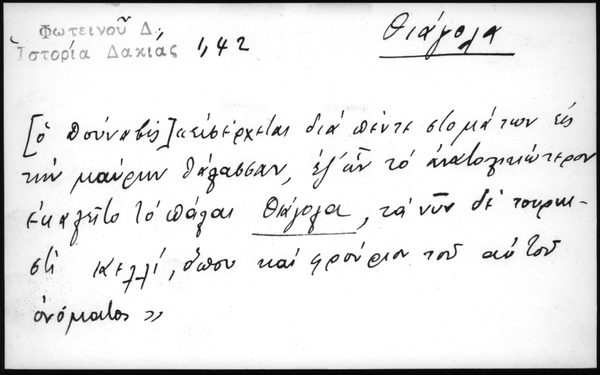 Φωτεινοῦ Δ,
Ἱστορία Δακίας 1,42
Θιάγολα
[ὁ Δούναβις] «εἰσέρχεται διά πέντε στομάτων εἰς
τήν μαύρην θάλασσαν, ἐξ ὧν τό ἀνατολικώτερον
ἐκαλεῖτο τό πάλαι Θιάγολα, τά νῦν δέ τουρκι-
στί Κελλί, ὅπου καί φρούριον τοῦ αὐτοῦ
ὀνόματος »